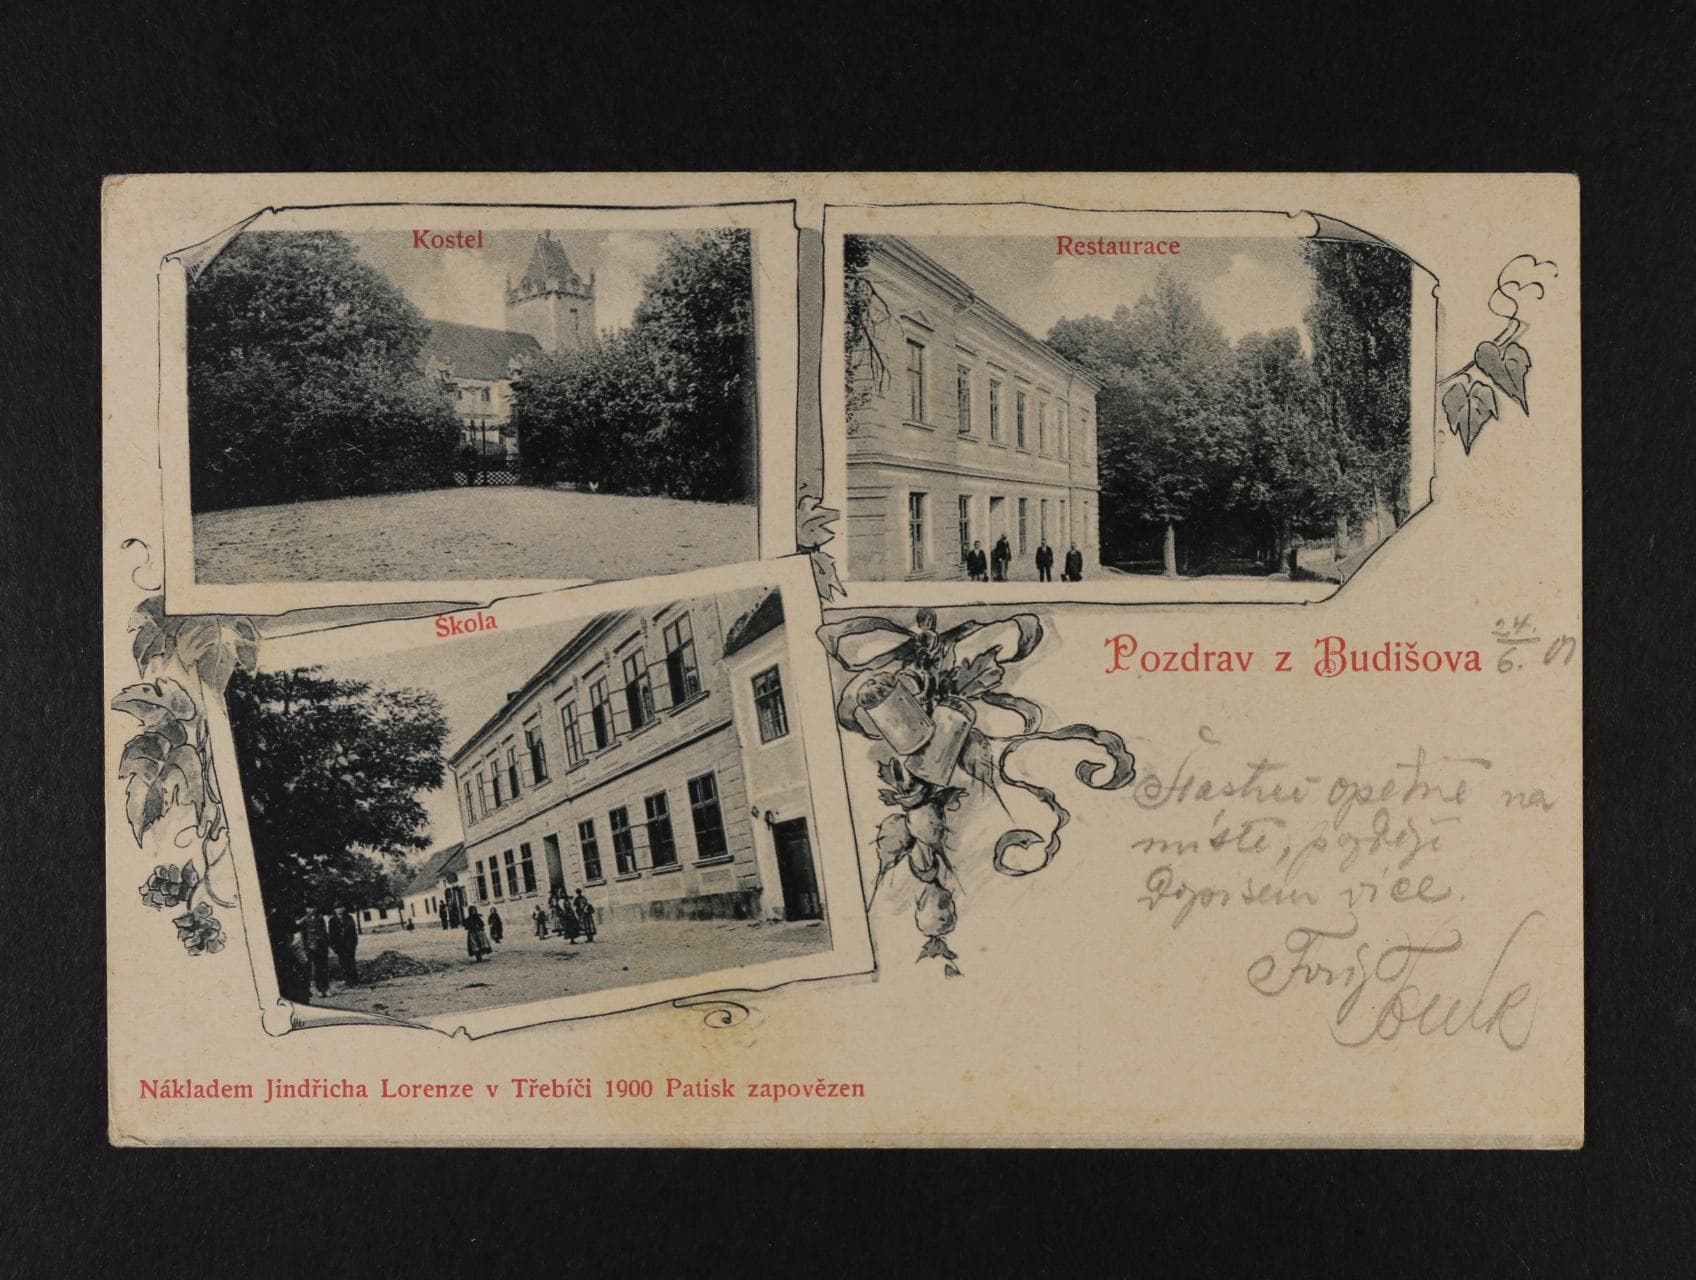 Kostel
Restaurace
Škola
Pozdrav z Budišova
24./6. 01
Šťastně opětně na
místě, později
Dopisem více.
Nákladem Jindřicha Lorenze v Třebíči 1900 Patisk zapovězen